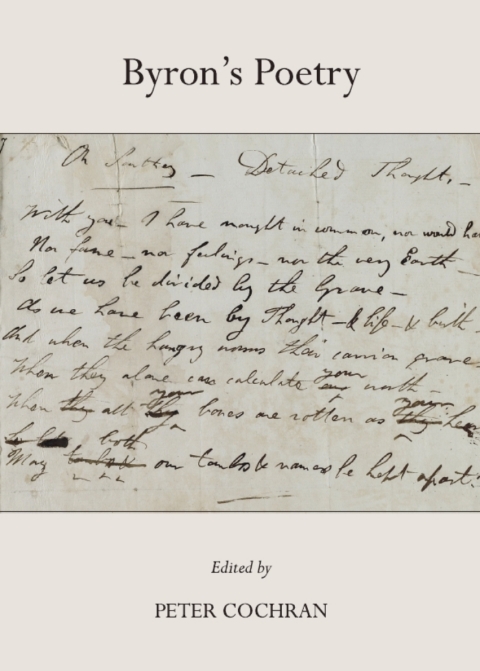 Byron's Poetry
On Southey — Detached Thought, —
With you I have nought in common, nor would ha
Nor fame — nor feelings — nor the very Earth —
So let us be divided by the Grave —
As we have been by Thought — & life — & birth —
And when the hungry worms their carrion crave
When they alone can calculate your worth —
When all your bones are rotten as your hea
both
May our tombs & names be kept apart!
Edited by
PETER COCHRAN